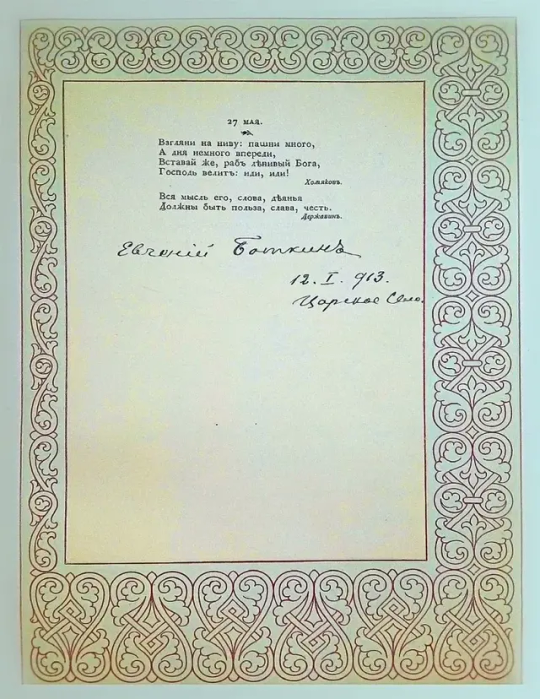 27 мая.
Взгляни на ниву: пашни много,
А дня немного впереди,
Вставай же, рабъ лѣнивый Бога,
Господь велитъ: иди, иди!
Хомяковъ.
Вся мысль его, слова, дѣянья
Должны быть польза, слава, честь.
Державинъ.
Евгеній Боткинъ
12. I. 913.
Царское Село.